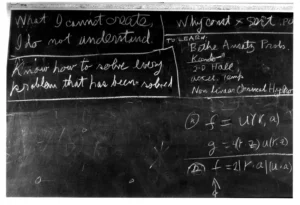 What I cannot create,
I do not understand.
Know how to solve every
problem that has been solved
Why const × sort
TO LEARN:
Bethe Ansatz Probs.
Kondo
2-D Hall
accel. Temp
Non Linear Classical Hydro
f = u(r, a)
g = u(r, z)
f = 2|r·a|